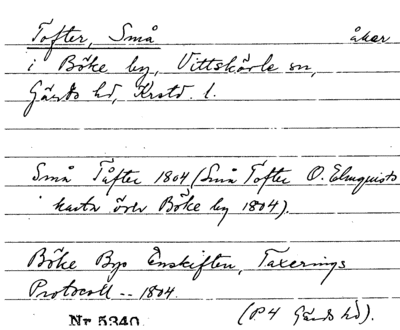 Tofter, Små åker
i Böke by, Vittskövle sn,
Gärds hd, Krstd. l.
Små Tåfter 1804 (Små Tofter O. Elmquists
karta över Böke by 1804).
Böke Bys Enskiften, Taxerings
Protocoll -- 1804.
(P4 Gärds hd).
Nr 5340